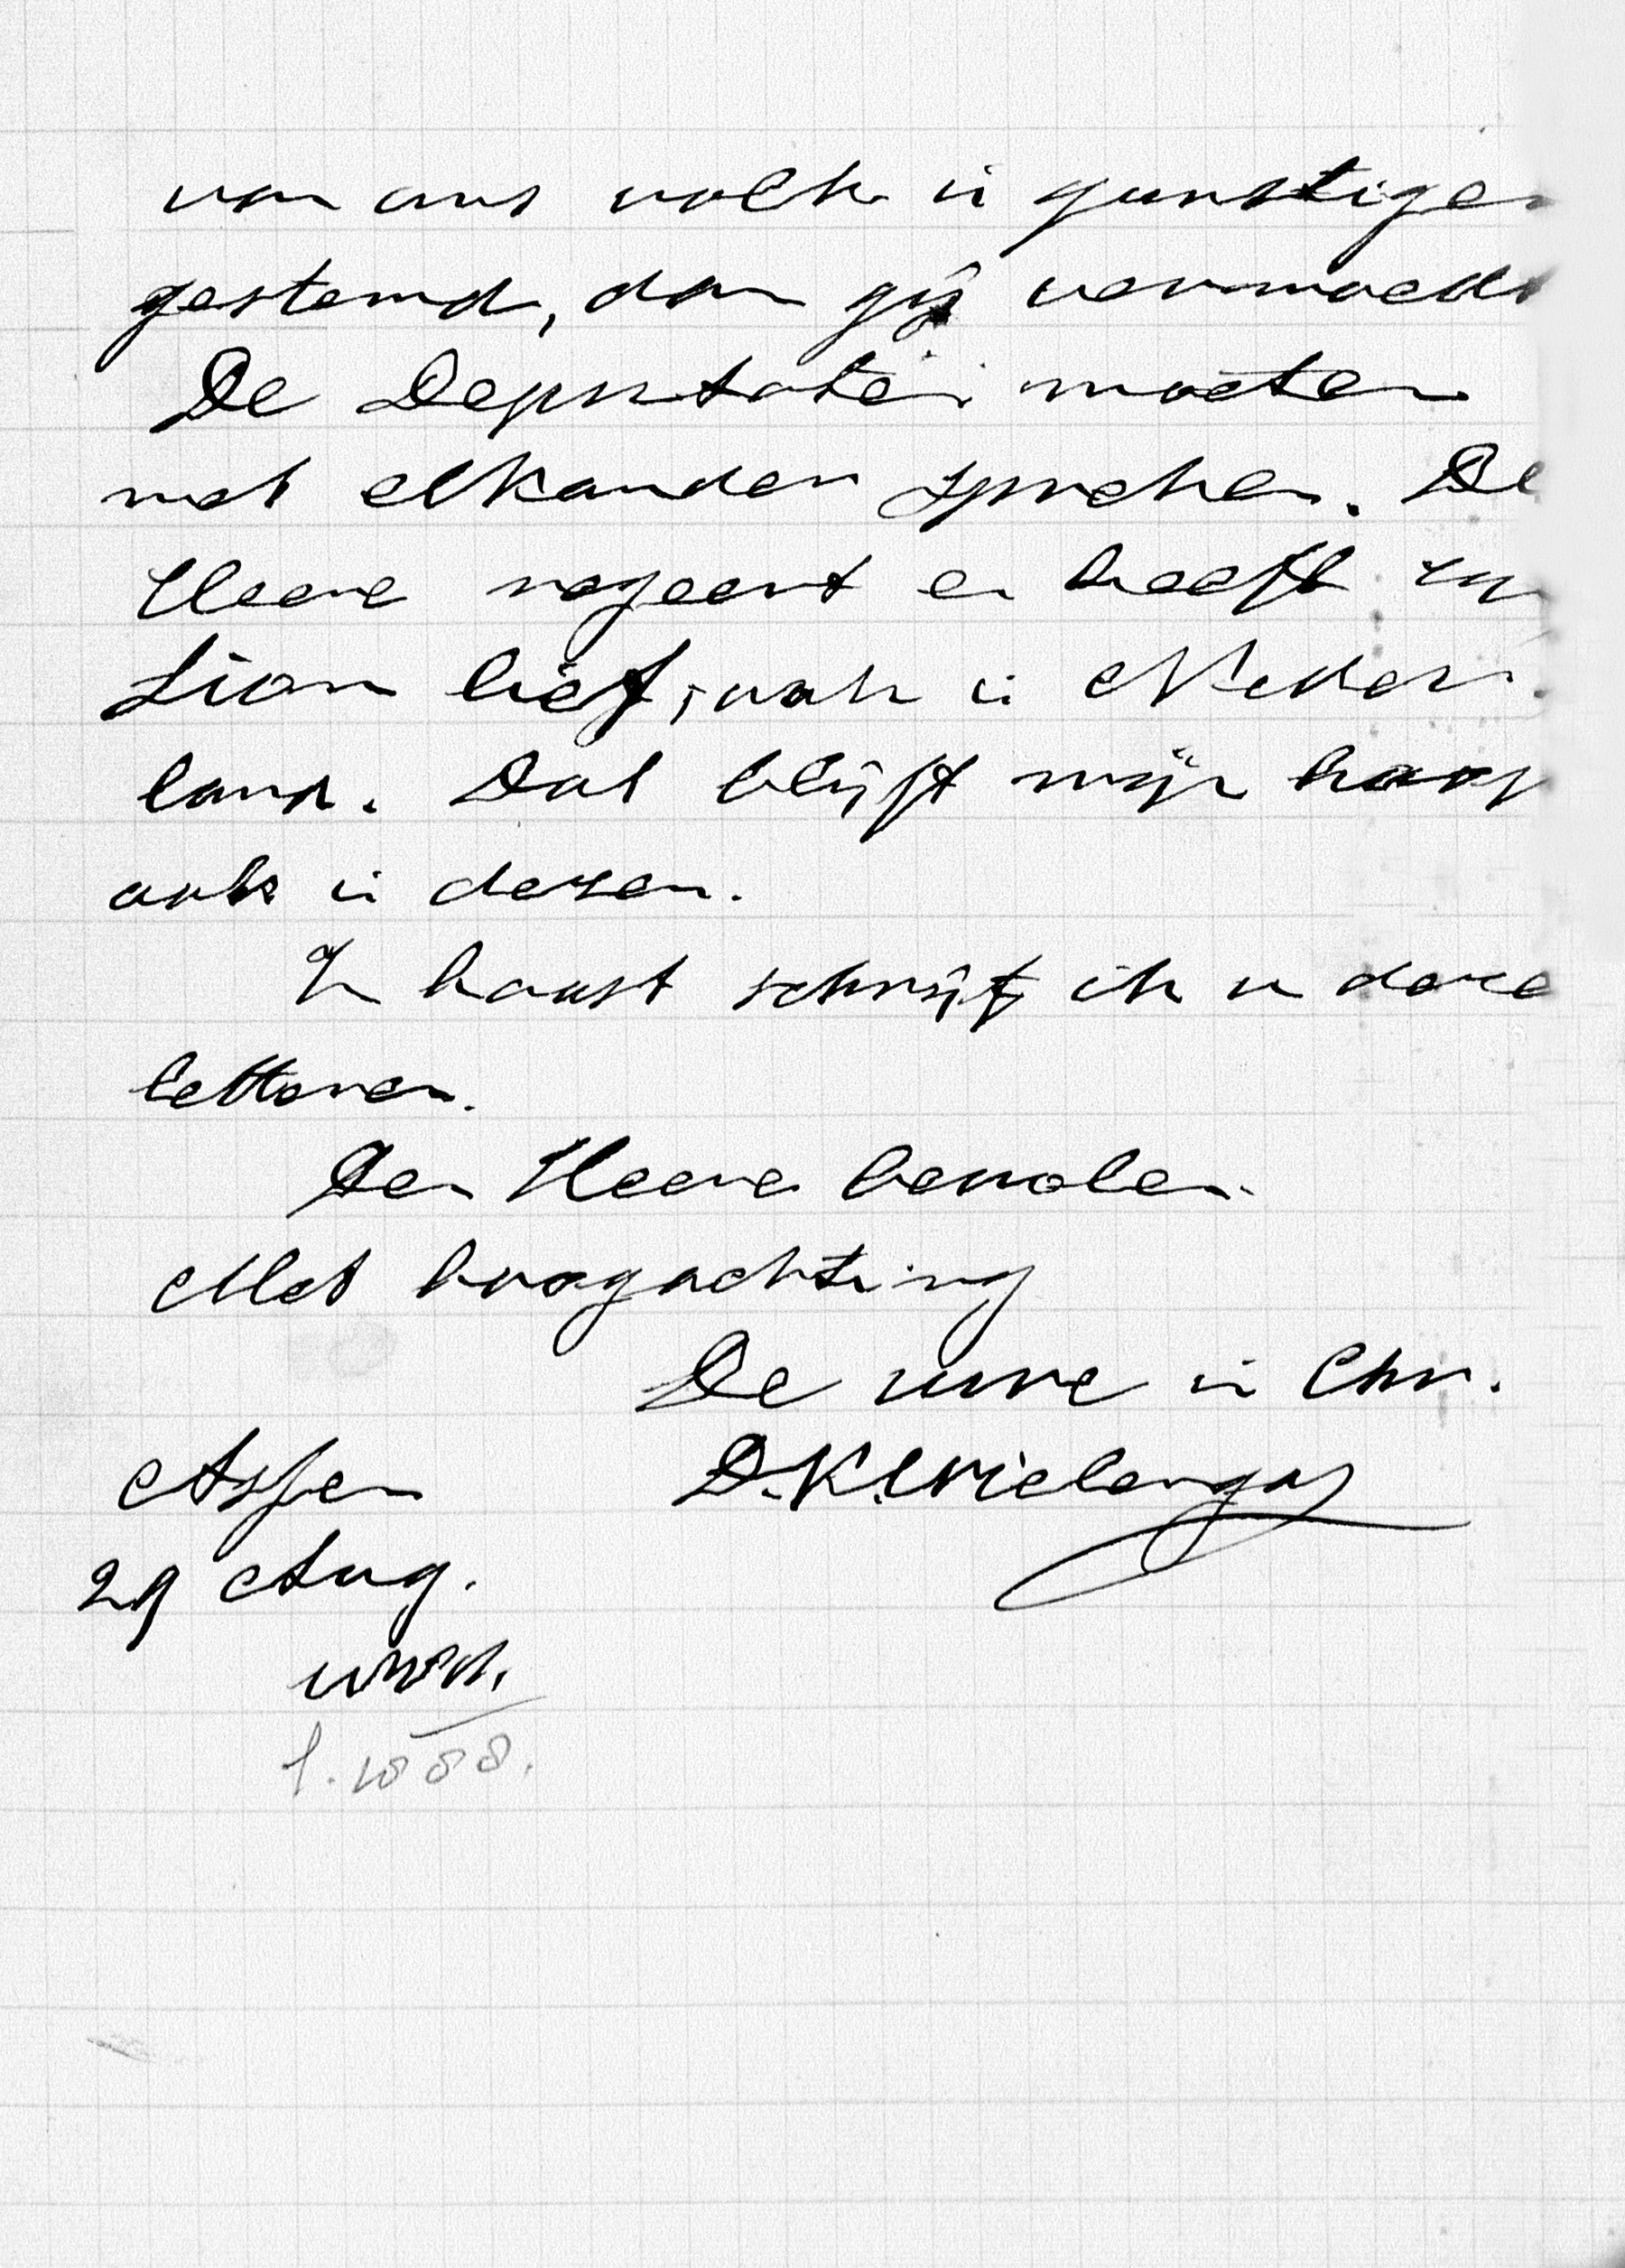 van ons volk is gunstiger
gestemd, dan gij vermoedt
De Deputaten moeten
met elkander spreken. De
Heere regeert en heeft zijn
Sion lief, ook in Neder-
land. Dat blijft mijn hoop
ook in dezen.
In haast schrijf ik u deze
letteren.
Den Heere bevolen.
Met hoogachting
De uwe in Chr.
Assen D.K. Wielenga
29 Aug.
1888.